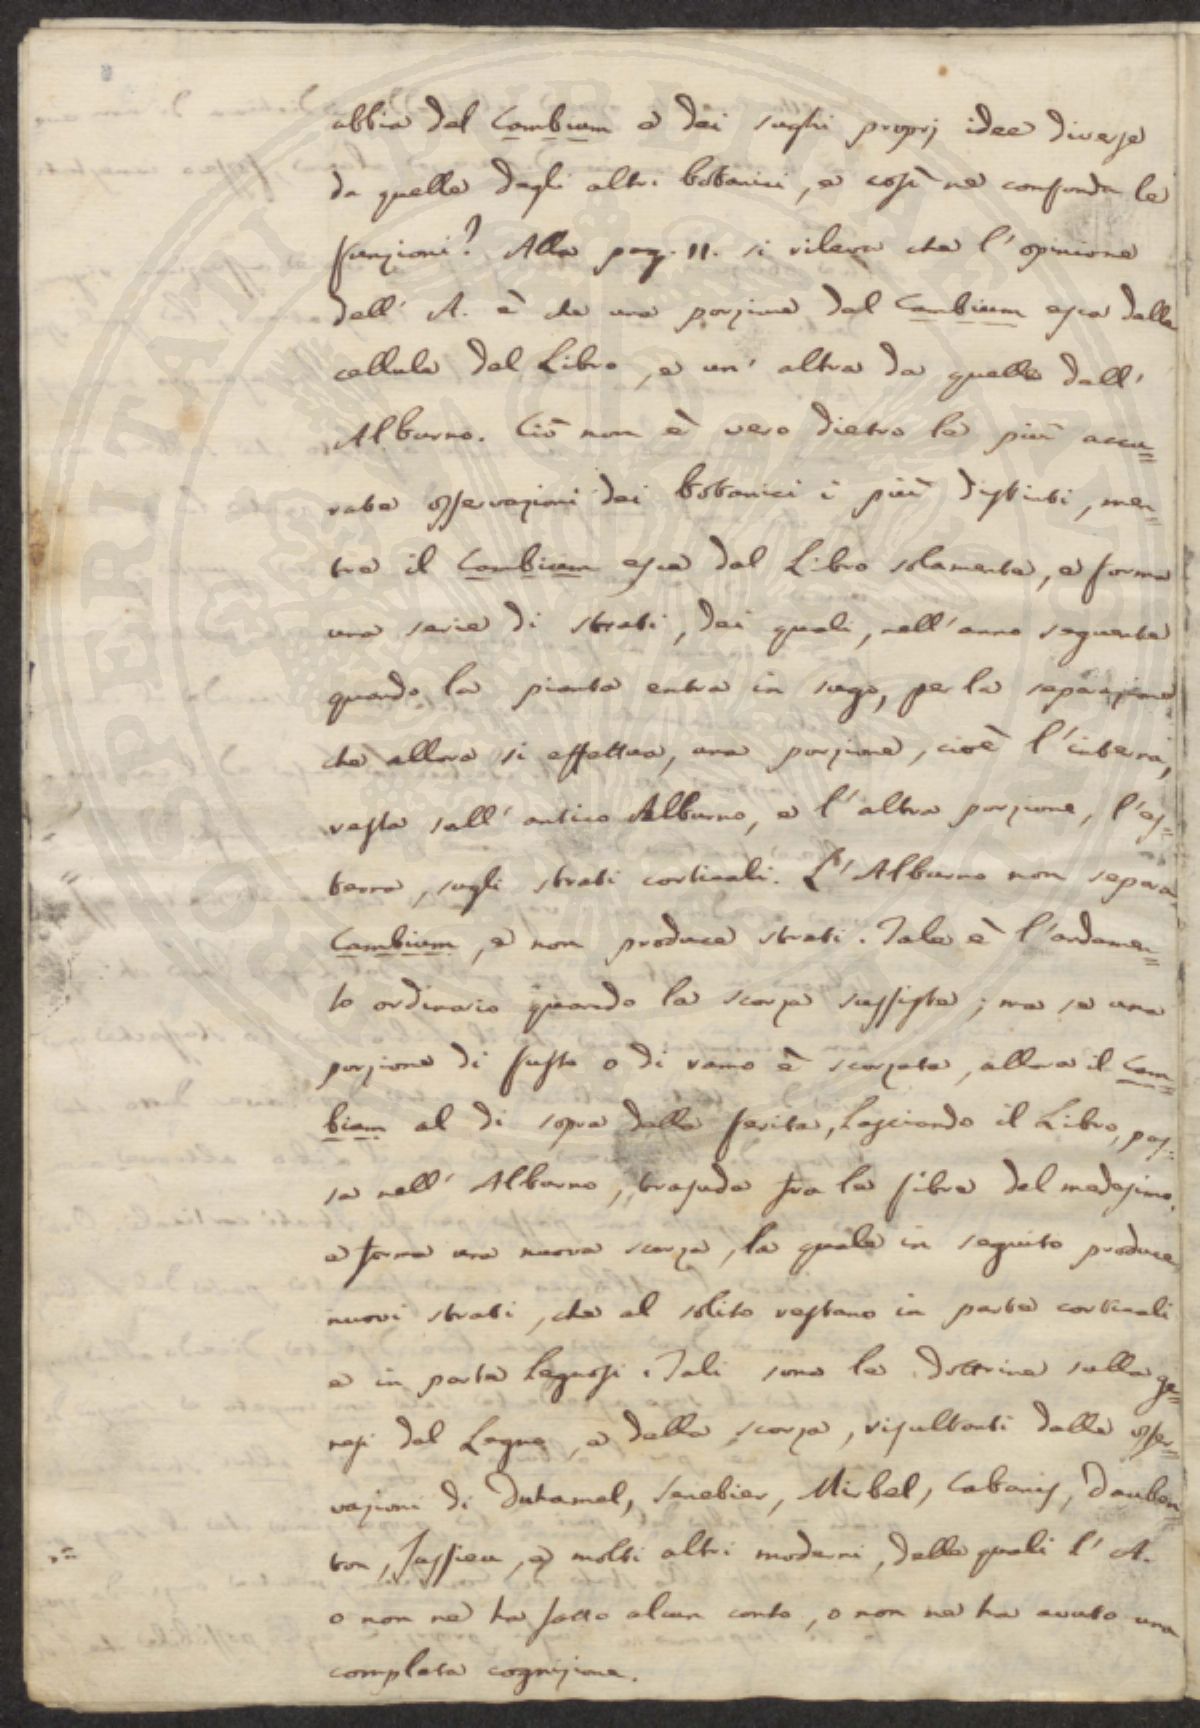 abbia del Cambium e dei sughi proprj idee diverse
da quelle degli altri botanici, e così ne confonda le
funzioni? Alla pag. 11. si rileva che l'opinione
dell' A. è che una porzione del Cambium esca dalle
cellule del Libro, e un' altra da quelle dell'
Alburno. Ciò non è vero dietro le più accu=
rate osservazioni dei botanici i più distinti, men=
tre il Cambium esce dal Libro solamente, e forma
una serie di strati, dei quali, nell'anno seguente
quando la pianta entra in sugo, per la separazione
che allora si effettua, una porzione, cioè l'interna,
resta sull' antico Alburno, e l'altra porzione, l'es=
terna, sugli strati corticali. L'Alburno non separa
Cambium, e non produce strati. Tale è l'andamen=
to ordinario quando la scorza sussiste; ma se una
porzione di fusto o di ramo è scorzata, allora il Cam=
bium al di sopra della ferita, lasciando il Libro, pas=
sa nell' Alburno, trasuda fra le fibre del medesimo,
e forma una nuova scorza, la quale in seguito produce
nuovi strati, che al solito restano in parte corticali
e in parte legnosi. Tali sono le dottrine sulla ge=
nesi del Legno, e della scorza, risultanti dalle osser=
vazioni di Duhamel, Senebier, Mirbel, Cabanis, Dauben=
ton, Jussieu, e molti altri moderni, delle quali l' A.
o non ne ha fatto alcun conto, o non ne ha avuto una
completa cognizione.
PROSPERITATI PUBLICAE AUGENDAE